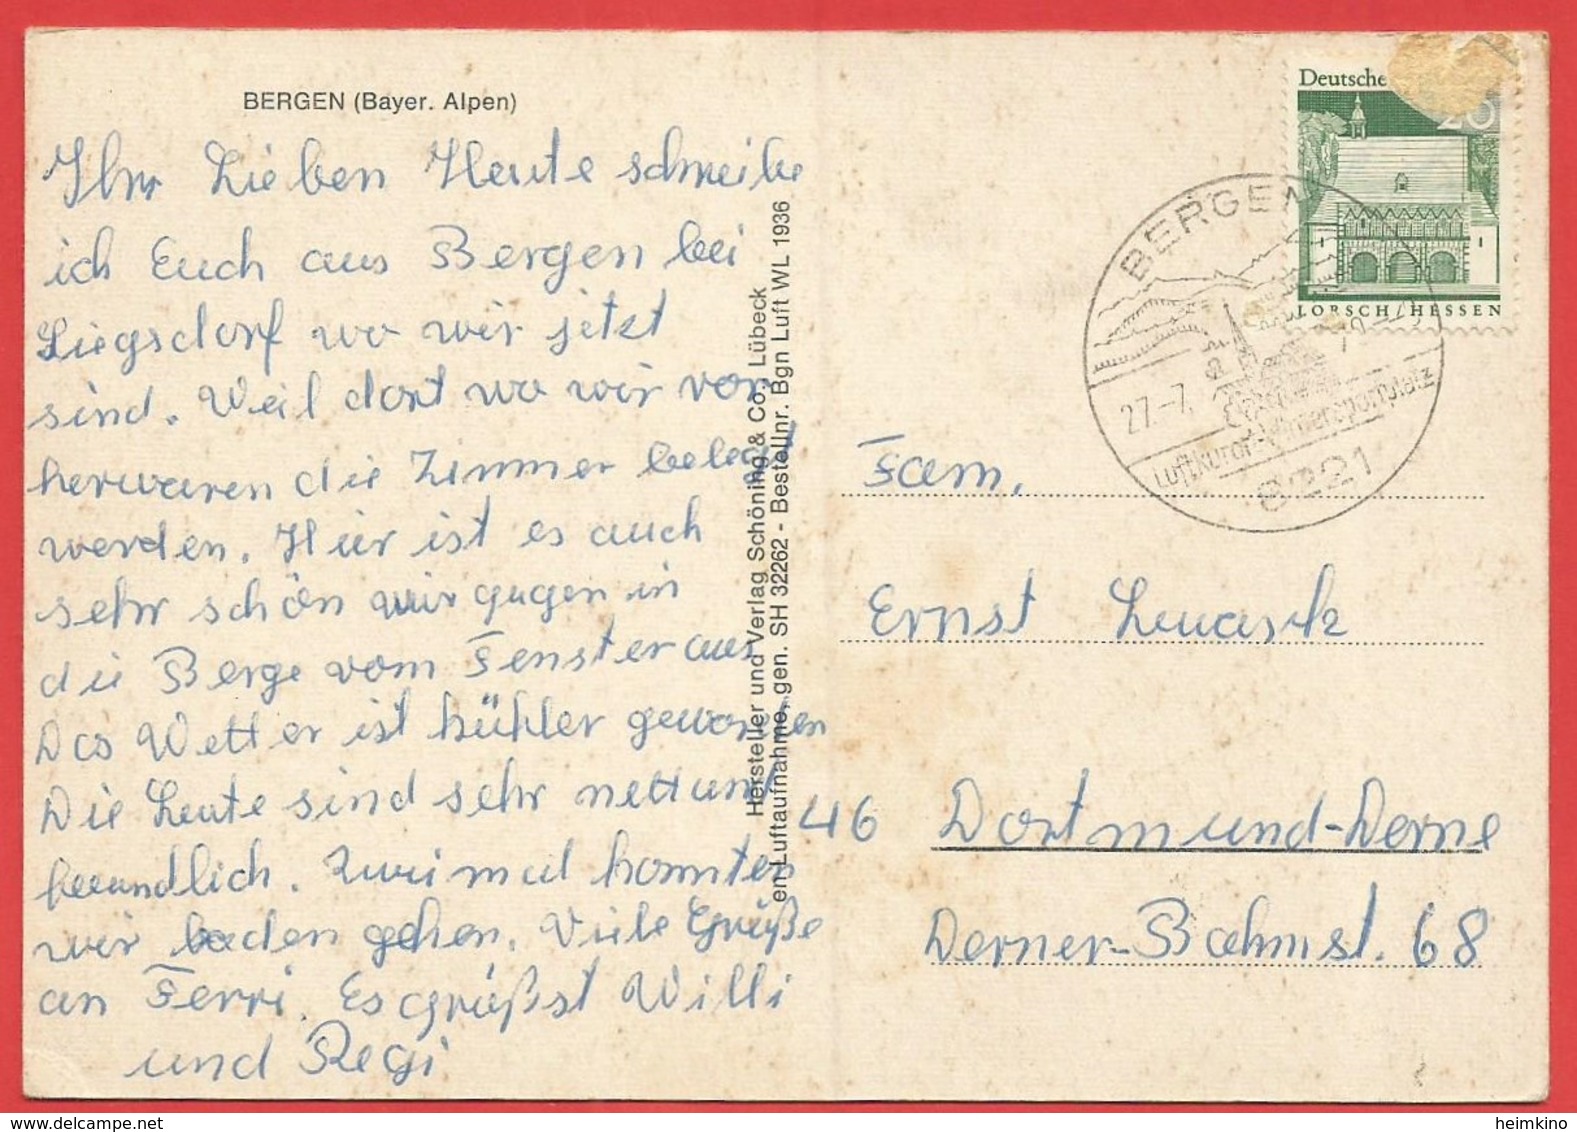 BERGEN (Bayer. Alpen)
Ihr Lieben Heute schreibe
ich Euch aus Bergen bei
Siegsdorf wo wir jetzt
sind. Weil dort wo wir vor
her waren die Zimmer belegt
werden. Hier ist es auch
sehr schön wir gugen in
die Berge vom Fenster aus
Das Wetter ist kühler geworden
Die Leute sind sehr nett und
freundlich. Zweimal konnten
wir baden gehen. Viele Grüße
an Ferri. Es grüßst Willi
und Regi
Hersteller und Verlag Schöning & Co., Lübeck
en Luftaufnahme, gen. SH 32262 - Bestellnr. Bgn Luft WL 1936
Deutsche
20
LORSCH/HESSEN
BERGEN
27.-7.
Luftkurort-Wintersportplatz
8221
Fam.
Ernst
46 Dortmund-Derne
Derner-Bahnst. 68
delcampe.net
heimkino